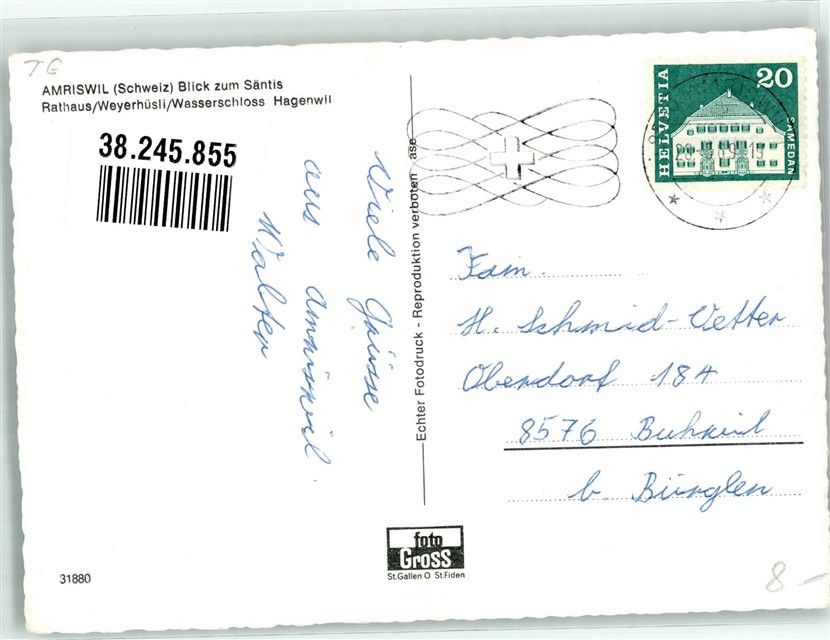 TG
AMRISWIL (Schweiz) Blick zum Säntis
Rathaus/Weyerhüsli/Wasserschloss Hagenwil
38.245.855
Viele Grüsse
aus Amriswil.
Walter
Echter Fotodruck - Reproduktion verboten
ase
HELVETIA
20
SAMEDAN
Fam.
H. Schmid-Vetter
Oberdorf 184
8576
b. Bürglen
foto
Gross
St.Gallen O St.Fiden
31880
8-